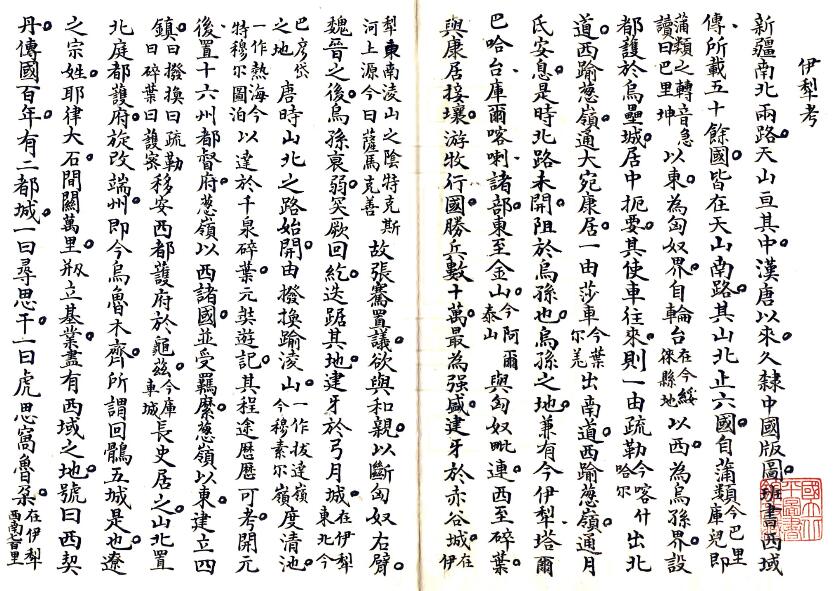 伊犁考
新疆南北兩路天山亘其中漢唐以來久隸中國版圖班書西域
傳所載五十餘國皆在天山南路其山北止六國自蒲類今巴里庫兒即
蒲類之轉音急讀曰巴里坤以東為匈奴界自輪台在今綏徠縣地以西為烏孫界設
都護於烏壘城居中扼要其使車往來則一由疏勒今喀什哈尔出北
道西踰葱嶺通大宛康居一由莎車今葉尔羌出南道西踰葱嶺通月
氏安息是時北路未開阻於烏孫也烏孫之地兼有今伊犁塔爾
巴哈台庫爾喀喇諸部東至金山今阿爾泰山與匈奴毗連西至碎葉
與康居接壤游牧行國勝兵數十萬最為强盛建牙於赤谷城在伊
犁東南淩山之陰特克斯河上源今曰薩馬克善故張騫置議欲與和親以斷匈奴右臂
魏晉之後烏孫衰弱突厥回紇迭踞其地建牙於弓月城在伊犁東北今
巴彦岱之地唐時山北之路始開由撥換踰淩山一作拔達嶺今穆素尔嶺度清池
一作熱海今特穆尔圖泊以達於千泉碎葉元奘遊記其程途歷歷可考開元
後置十六州都督府葱嶺以西諸國並受羈縻葱嶺以東建立四
鎮曰撥換曰疏勒曰碎葉曰護密移安西都護府於龜茲今庫車城長史居之山北置
北庭都護府旋改端州即今烏魯木齊所謂回鶻五城是也遼
之宗姓耶律大石間關萬里刱立基業盡有西域之地號曰西契
丹傳國百年有二都城一曰尋思干一曰虎思窩魯朶在伊犁西南七百里